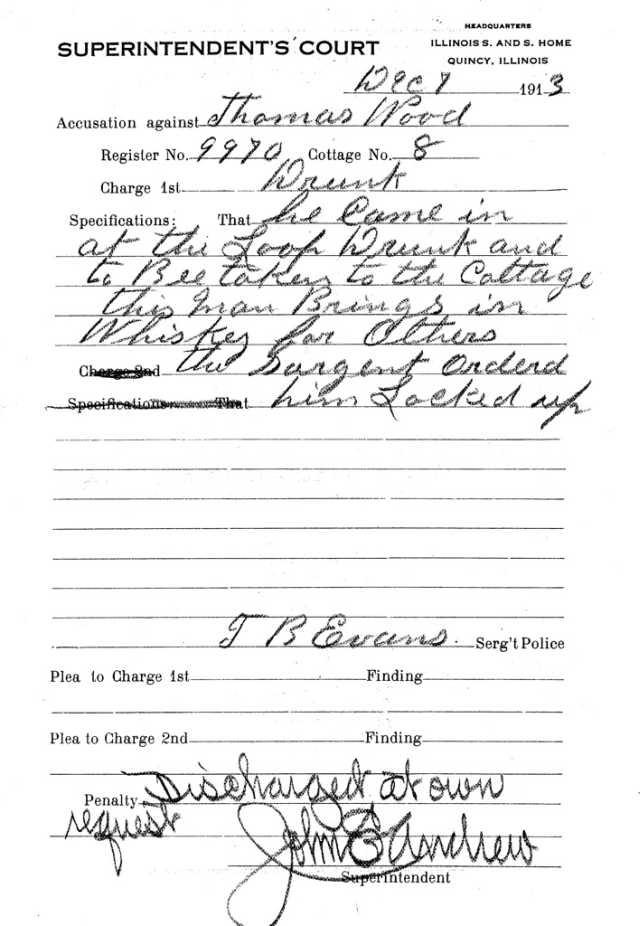 HEADQUARTERS
SUPERINTENDENT'S COURT
ILLINOIS S. AND S. HOME
QUINCY, ILLINOIS
Dec 7 1913
Accusation against Thomas Wood
Register No. 9970 Cottage No. 8
Charge 1st Drunk
Specifications: That he Came in
at the Loop Drunk and
to Bee taken to the Cottage
this man Brings in
Whiskey for Others
Charge 2nd the Sargent orderd
Specifications That him Locked up
T B Evans. Serg't Police
Plea to Charge 1st Finding
Plea to Charge 2nd Finding
Penalty Discharged at own
request
John E Andrew
Superintendent